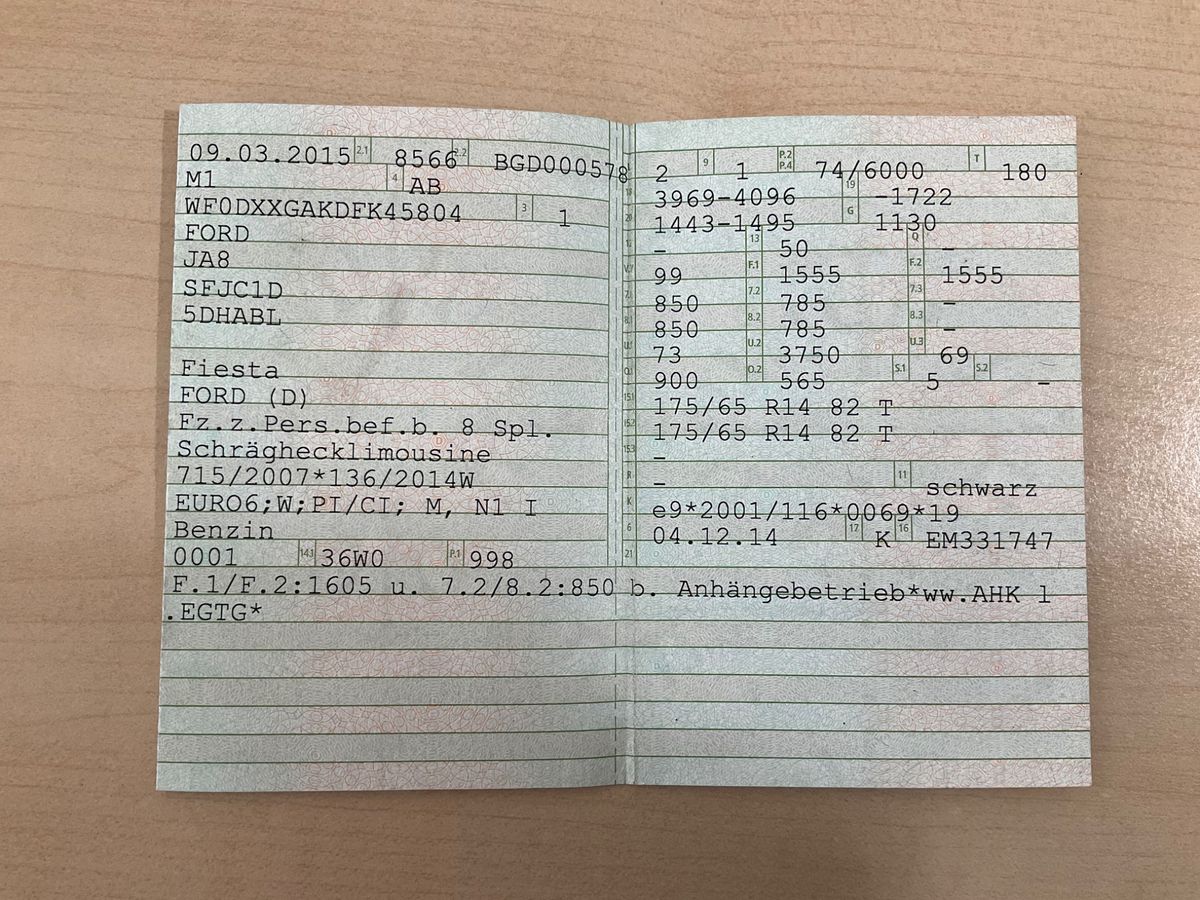 09.03.2015 2.1 8566 2.2 BGD000578
M1 4 AB
WF0DXXGAKDFK45804 3 1
FORD
JA8
SFJC1D
5DHABL
Fiesta
FORD (D)
Fz.z.Pers.bef.b. 8 Spl.
Schräghecklimousine
715/2007*136/2014W
EURO6;W;PI/CI; M, N1 I
Benzin
0001 14.1 36W0 P.1 998
2 9 1 P.2 P.4 74/6000 T 180
18 3969-4096 19 -1722
20 1443-1495 G 1130
12 - 13 50 Q -
V.7 99 F.1 1555 F.2 1555
7.1 850 7.2 785 7.3 -
8.1 850 8.2 785 8.3 -
U.1 73 U.2 3750 U.3 69
O.1 900 O.2 565 S.1 5 S.2 -
15.1 175/65 R14 82 T
15.2 175/65 R14 82 T
15.3 -
R - 11 schwarz
K e9*2001/116*0069*19
6 04.12.14 17 K 16 EM331747
21
F.1/F.2:1605 u. 7.2/8.2:850 b. Anhängebetrieb*ww.AHK l
.EGTG*